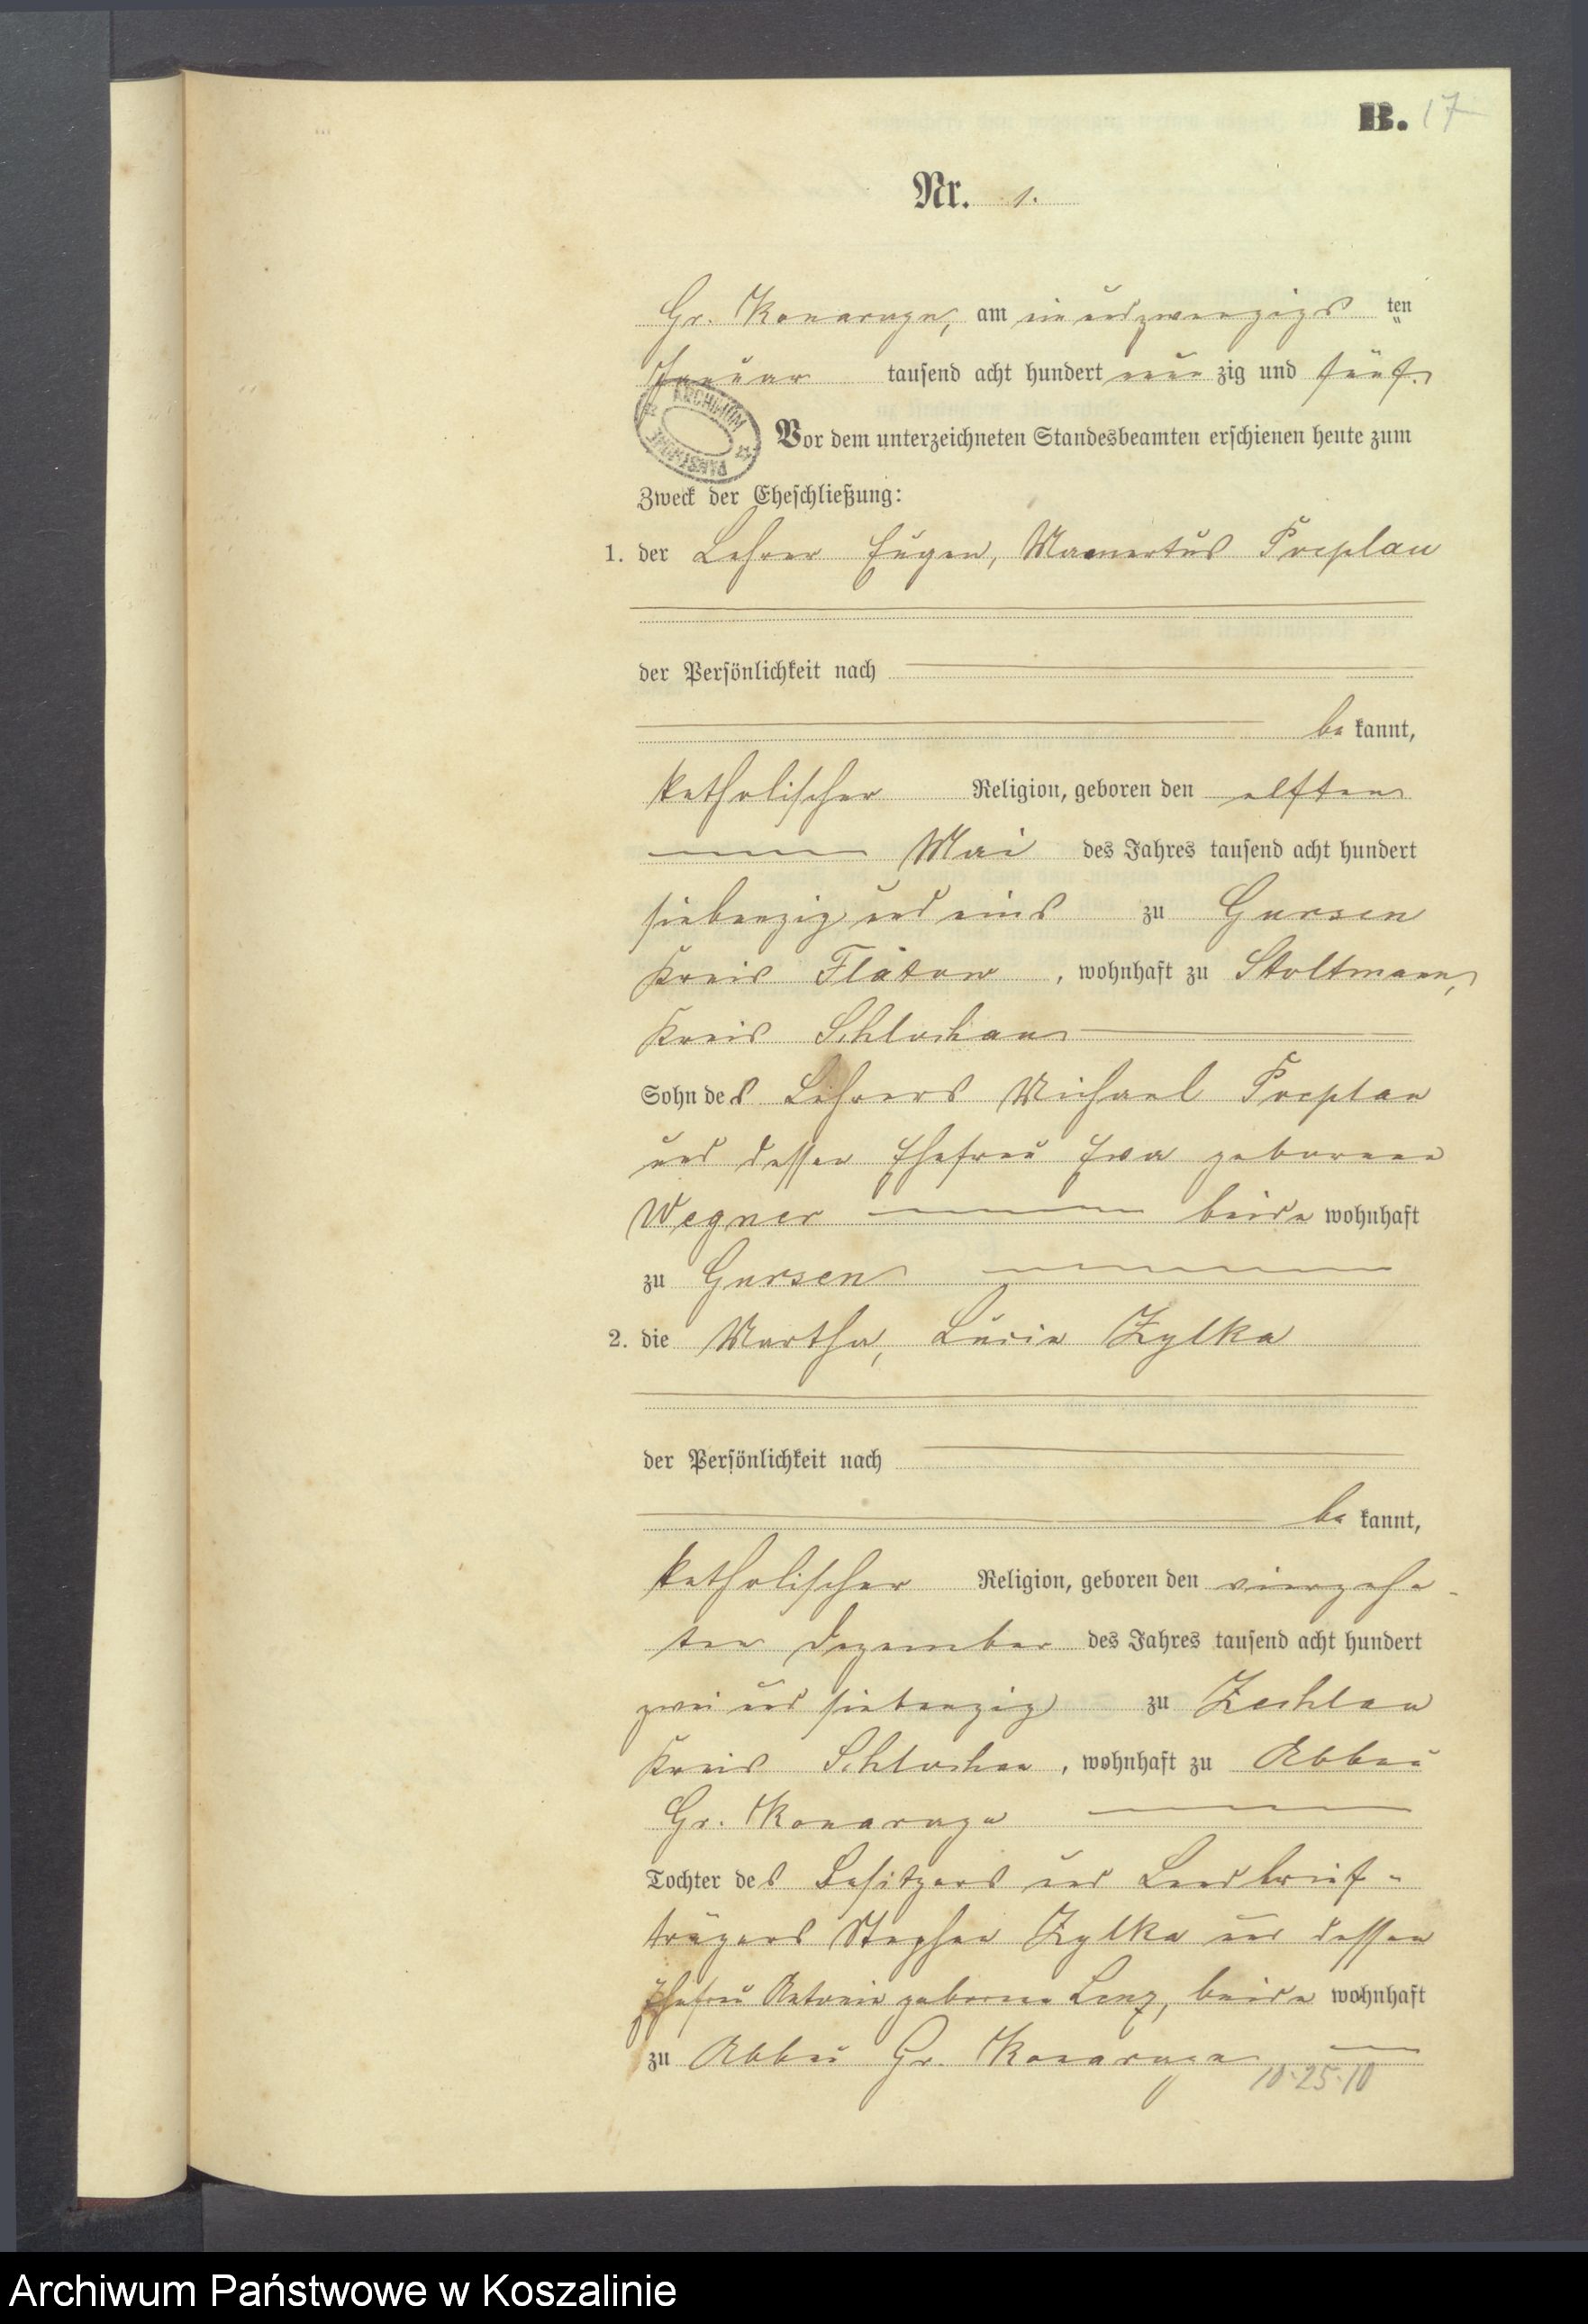 B. 17
Nr. 1.
Gr. Konarczyn, am ein und zwanzigs ten
Januar tausend acht hundert neun zig und fünf.
ARCHIWUM PAŃSTWOWE
Vor dem unterzeichneten Standesbeamten erschienen heute zum
Zweck der Eheschließung:
1. der Lehrer Eugen, Mamertus
der Persönlichkeit nach
be kannt,
katholischer Religion, geboren den elften
Mai des Jahres tausend acht hundert
siebenzig und eins zu Gursen
Kreis Flatow, wohnhaft zu Stoltmann,
Kreis Schlochau
Sohn des Lehrers Michael
und dessen Ehefrau Eva geborenen
Wegner beide wohnhaft
zu Gursen
2. die Martha, Lucia Zylka
der Persönlichkeit nach
be kannt,
katholischer Religion, geboren den vierzehn-
ten Dezember des Jahres tausend acht hundert
zwei und siebenzig zu Zechlau
Kreis Schlochau, wohnhaft zu Abbau
Gr. Konarczyn
Tochter des Besitzers und Landbrief-
trägers Stephan Zylka und dessen
Ehefrau Antonie geborene Lenz, beide wohnhaft
zu Abbau Gr. Konarczyn
10.25.10
Archiwum Państwowe w Koszalinie